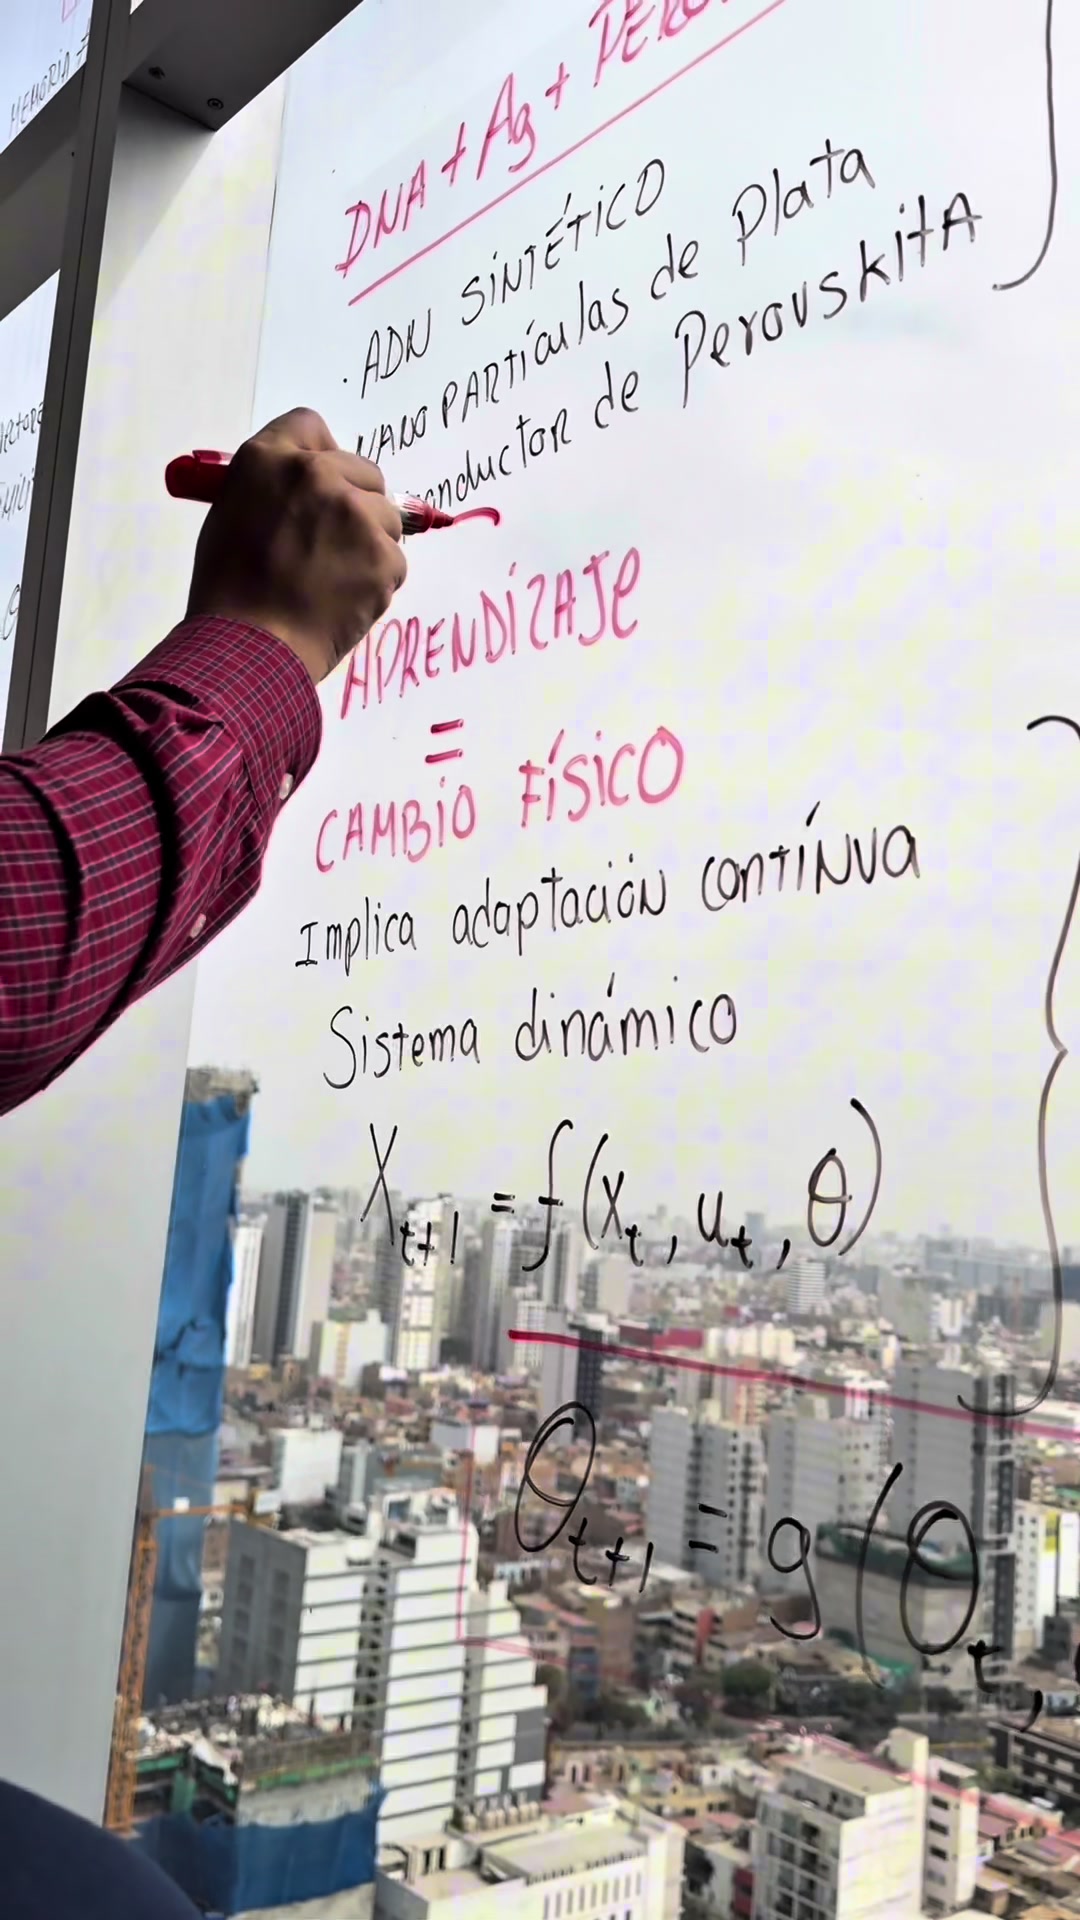 MEMORIA
DNA + Ag + PERO
. ADN SINTÉTICO
NANOPARTículas de Plata
conductor de PerovskitA
APRENDIZAJE
=
CAMBIO FÍSICO
Implica adaptación contínua
Sistema dinámico
X_{t+1} = f(x_t, u_t, θ)
θ_{t+1} = g(θ_t,